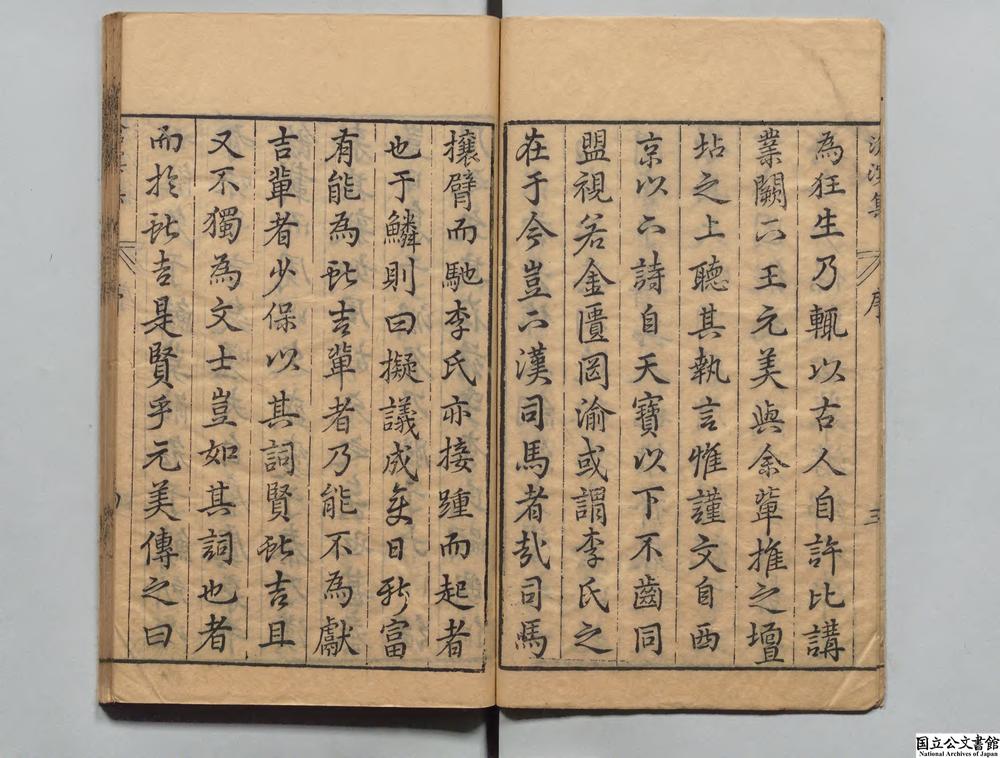 為狂生乃輒以古人自許比講
業闕下王元美與余輩推之壇
坫之上聽其執言惟謹文自西
京以下詩自天寶以下不齒同
盟視若金匱罔渝或謂李氏之
在于今豈下漢司馬者哉司馬
攘臂而馳李氏亦接踵而起者
也于鱗則曰擬議成變日新富
有能為獻吉輩者乃能不為獻
吉輩者少保以其詞賢獻吉且
又不獨為文士豈如其詞也者
而於獻吉是賢乎元美傳之曰
滄溟集
序
三
国立公文書館
National Archives of Japan